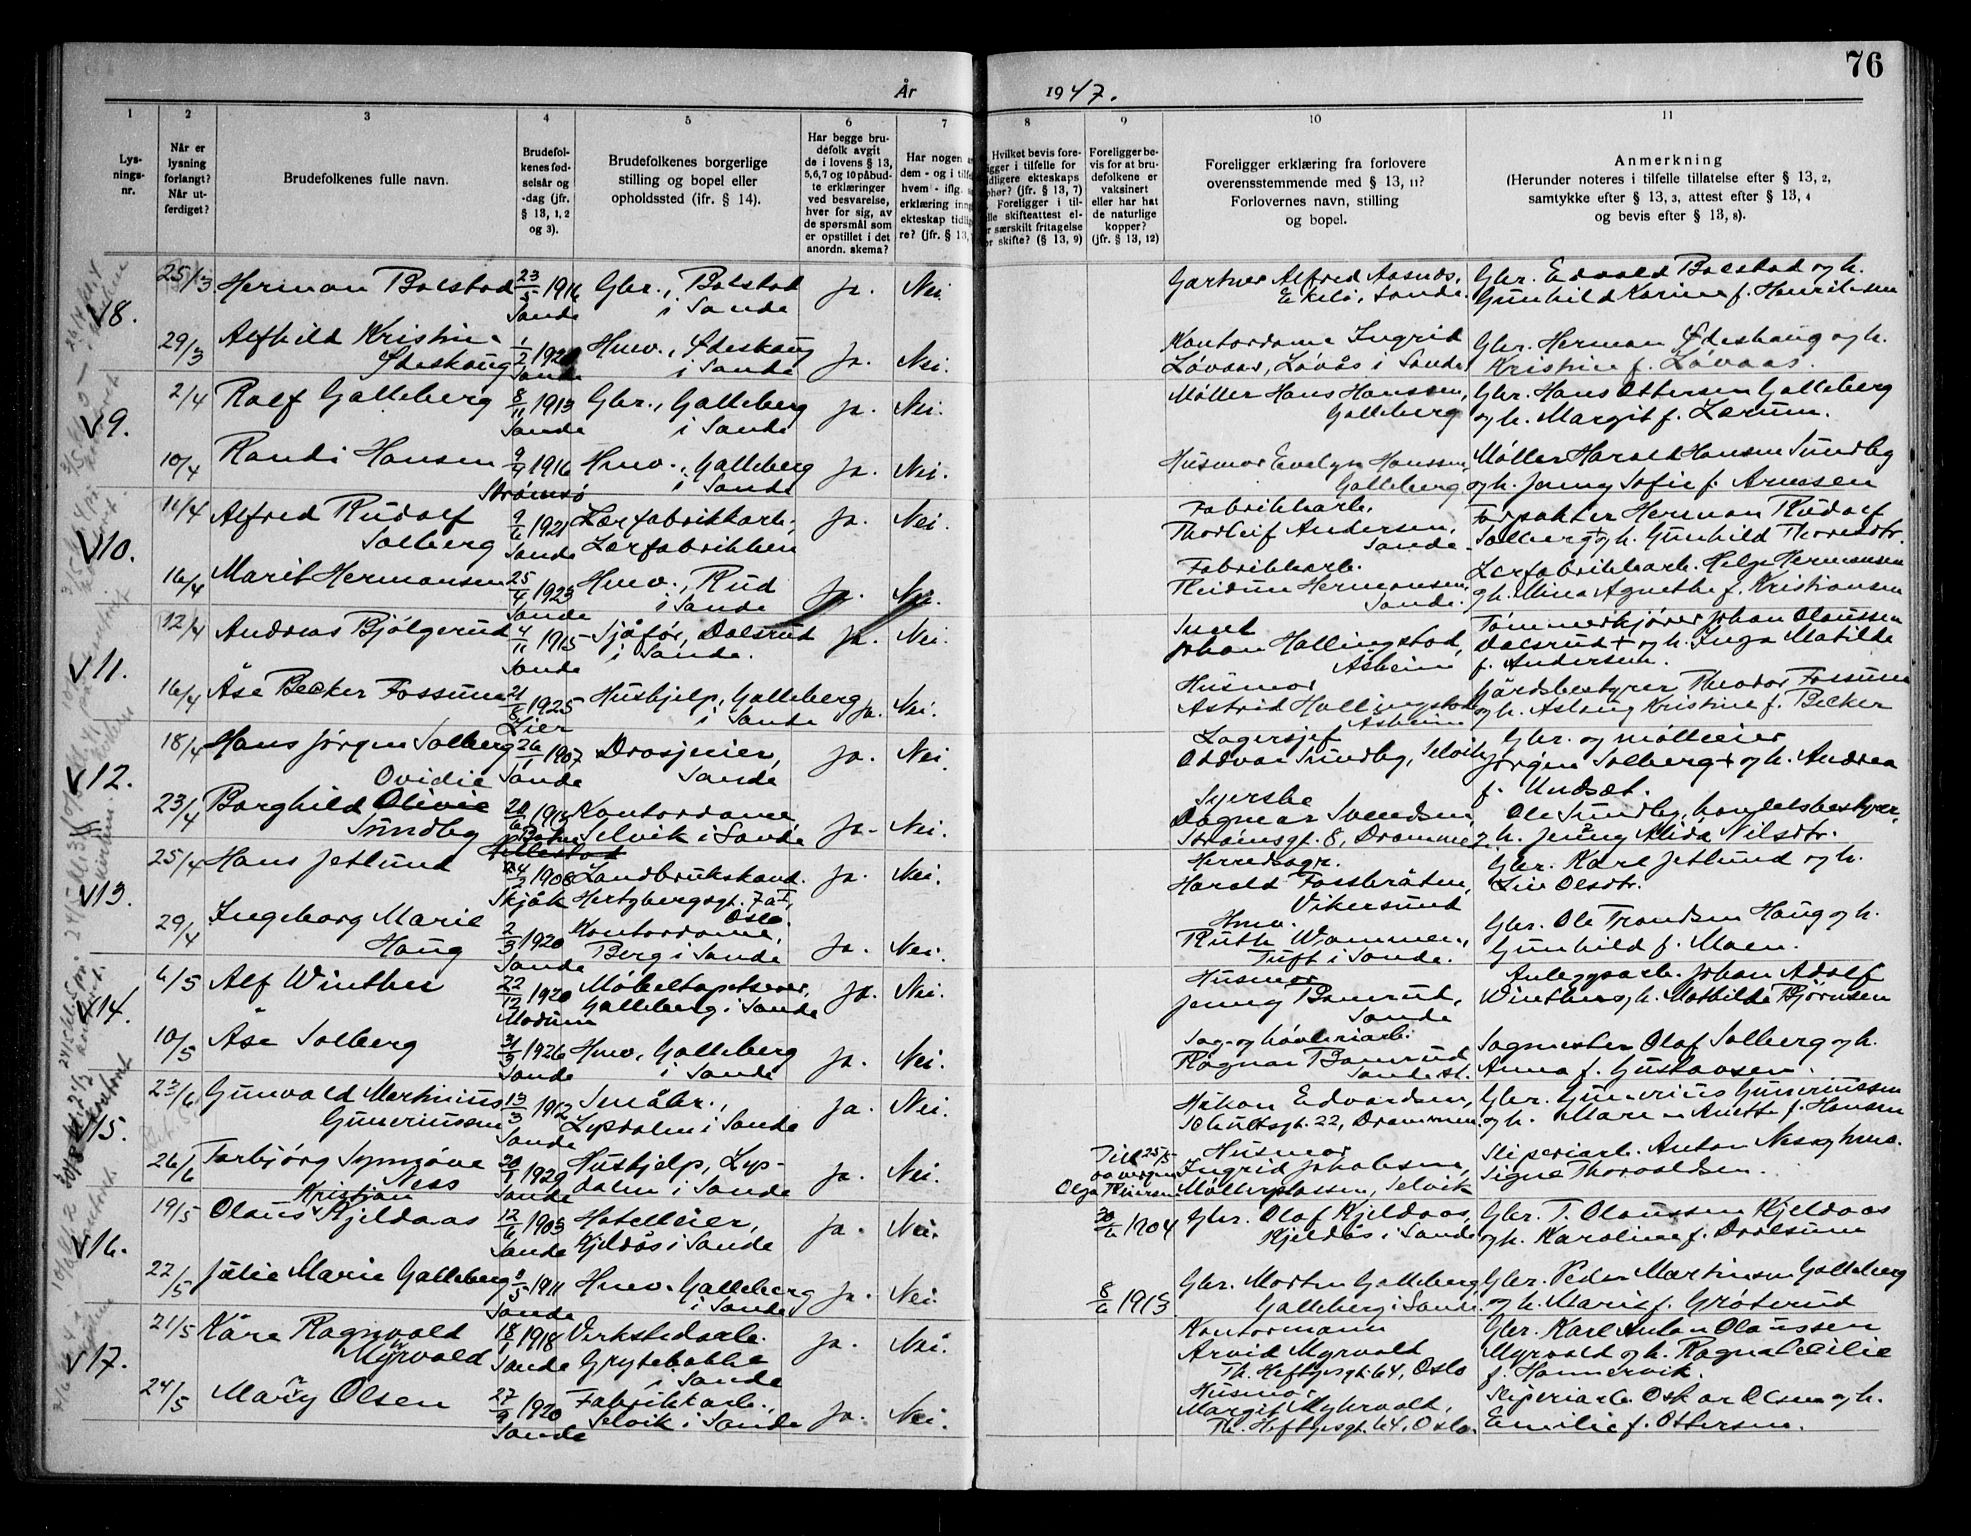 76
År 1947.
1 2 3 4 5 6 7 8 9 10 11
Lysningsnr.
Når er lysning forlangt? Når utferdiget?
Brudefolkenes fulle navn.
Brudefolkenes fødselsår og -dag (jfr. § 13, 1, 2 og 3).
Brudefolkenes borgerlige stilling og bopel eller opholdssted (jfr. § 14).
Har begge brudefolk avgit de i lovens § 13, 5, 6, 7 og 10 påbudte erklæringer ved besvarelse, hver for sig, av de spørsmål som er opstillet i det anordn. skema?
Har nogen a
dem - og i tilfe
hvem - iflg. s
erklæring inng
ekteskap tidlig
re? (jfr. § 13,
Hvilket bevis fore-
igger i tilfelle for
idligere ekteskaps
ophør? (jfr. § 13, 7)
Foreligger i til-
lle skifteattest el-
r særskilt fritagelse
or skifte? (§ 13, 9)
Foreligger bevis for at brudefolkene er vaksinert eller har hat de naturlige kopper? (jfr. § 13, 12)
Foreligger erklæring fra forlovere overensstemmende med § 13, 11? Forlovernes navn, stilling og bopel.
Anmerkning
(Herunder noteres i tilfelle tillatelse efter § 13, 2, samtykke efter § 13, 3, attest efter § 13, 4 og bevis efter § 13, 8).
8. 25/3 Herman Bolstad 23/5 1916 Sande Gbr., Bolstad i Sande Ja. Nei. Gartner Alfred Aasnes, Ekeli, Sande. Gbr. Edvald Bolstad og h. Gunhild Karine f. Henriksen
29/3 Alfhild Kristine Ødeskaug 1/2 Sande Hmv., Ødeskaug i Sande Ja. Nei. Kontordame Ingrid Løvaas, Løvås i Sande Gbr. Herman Ødeskaug og h. Kristine f. Løvaas.
9. 2/4 Rolf Galleberg 8/11 1913 Sande Gbr., Galleberg i Sande Ja. Nei. Møller Hans Hanssen, Galleberg Gbr. Hans Ottersen Galleberg og h. Margit f. Lerum.
10/4 Randi Hansen 9/9 1916 Strømsø Hmv., Galleberg i Sande Ja. Nei. Husmor Evelyn Hanssen, Galleberg. Møller Harald Hansen Sundby og h. Jenny Sofie f. Arnesen
10. 11/4 Alfred Rudolf Solberg 9/6 1921 Sande Lærfabrikkarb., Lærfabrikken Ja. Nei. Fabrikkarb. Thorleif Andersen, Sande. Forpakter Herman Rudolf Solberg + og h. Gunhild Thorsdtr.
16/4 Marit Hermansen 25/4 1923 Sande Hmv., Rud i Sande Ja. Nei. Fabrikkarb. Reidun Hermansen, Sande. Lærfabrikkarb. Helge Hermansen og h. Mina Agnethe f. Kristiansen
11. 12/4 Andreas Bjølgerud 4/11 1915 Sande Sjåfør, Dalsrud i Sande. Ja. Nei. Johan Hallingstad, Åsheim Tømmerkjører Johan Olaussen Dalsrud + og h. Inga Matilde f. Andersen.
16/4 Åse Becker Fossum 21/8 1925 Lier Hushjelp, Galleberg i Sande Ja. Nei. Husmor Astrid Hallingstad, Åsheim Gårdsbestyrer Theodor Fossum og h. Aslaug Kristine f. Becker
12. 18/4 Hans Jørgen Solberg 26/1 1907 Sande Drosjeeier, Sande Ja. Nei. Lagersjef Oddvar Sundby, Selvik Gbr. og mølleeier Jørgen Solberg + og h. Andrea f. Undset.
23/4 Borghild Olivie Ovidie Sundby Kontordame, Selvik i Sande Ja. Nei. Syerske Dagmar Svendsen, Strømsgt. 8, Drammen Ole Sundby, handelsbestyrer, og h. Jenny Alida Nilsdtr.
13. 25/4 Hans Jetlund 24/2 1908 Skjåk Landbrukskand. Hertzbergsgt. 7 a I, Oslo. Ja. Nei. Herredsagr. Harald Fossbråten, Vikersund Gbr. Karl Jetlund og h. Liv Olsdtr.
29/4 Ingeborg Marie Haug 2/3 1920 Sande Kontordame, Berg i Sande Ja. Nei. Hmv. Ruth Wammer, Tuft i Sande. Gbr. Ole Trondsen Haug og h. Gunhild f. Moen.
14. 6/5 Alf Winther 22/12 1920 Modum Møbeltapetserer, Galleberg i Sande Ja. Nei. Husmor Jenny Bonrud, Sande Anleggsarb. Johan Adolf Winther og h. Mathilde Bjørnsen
10/5 Åse Solberg 31/3 1926 Sande Hmv., Galleberg i Sande Ja. Nei. Sag- og høvleriarb. Ragnar Bonrud, Sande st. Sagmester Olaf Solberg og h. Anna f. Gustavsen.
15. 23/6 Gunvald Martinius Gunerinussen 13/3 1912 Sande Småbr., Lysdalen i Sande Ja. Nei. Håkon Edvardsen, Schultsgt. 22, Drammen. Gbr. Gunerius Gunerinussen og h. Maren Anette f. Hansen
26/6 Torbjørg Synnøve Ness 20/1 1929 Sande Hushjelp, Lysdalen i Sande Ja. Nei. Till 25/5 Husmor Ingrid Jakobsen, Møllerplassen, Selvik Sliperiarb. Anton Ness og hmv. Signe Thorvaldsen.
16. 19/5 Olaus Kristian Kjeldaas 12/6 1903 Sande Hotelleier, Kjeldås i Sande Ja. Nei. 30/6 1904 Gbr. Olaf Kjeldaas, Kjeldås i Sande Gbr. T. Olaussen Kjeldaas og h. Karoline f. Dvolsum
22/5 Julie Marie Galleberg 9/5 1911 Sande Hmv. Galleberg i Sande Ja. Nei. 8/6 1913 Gbr. Morten Galleberg, Galleberg i Sande. Gbr. Peder Martinsen Galleberg og h. Marie f. Grøterud
17. 21/5 Kåre Ragnvald Myrvold 18/1 1918 Sande Verkstedarb. Grytebakke i Sande Ja. Nei. Kontormann Arvid Myrvold Th. Heftyesgt. 64, Oslo Gbr. Karl Anton Olaussen Myrvold og h. Ragna Cecilie f. Hannervik.
24/5 Mary Olsen 27/9 1920 Sande Fabrikkarb., Selvik i Sande Ja. Nei. Husmor Margit Myhrvold, Th. Heftyesgt. 64, Oslo. Sliperiarb. Oskar Olsen og h. Emilie f. Ottersen.